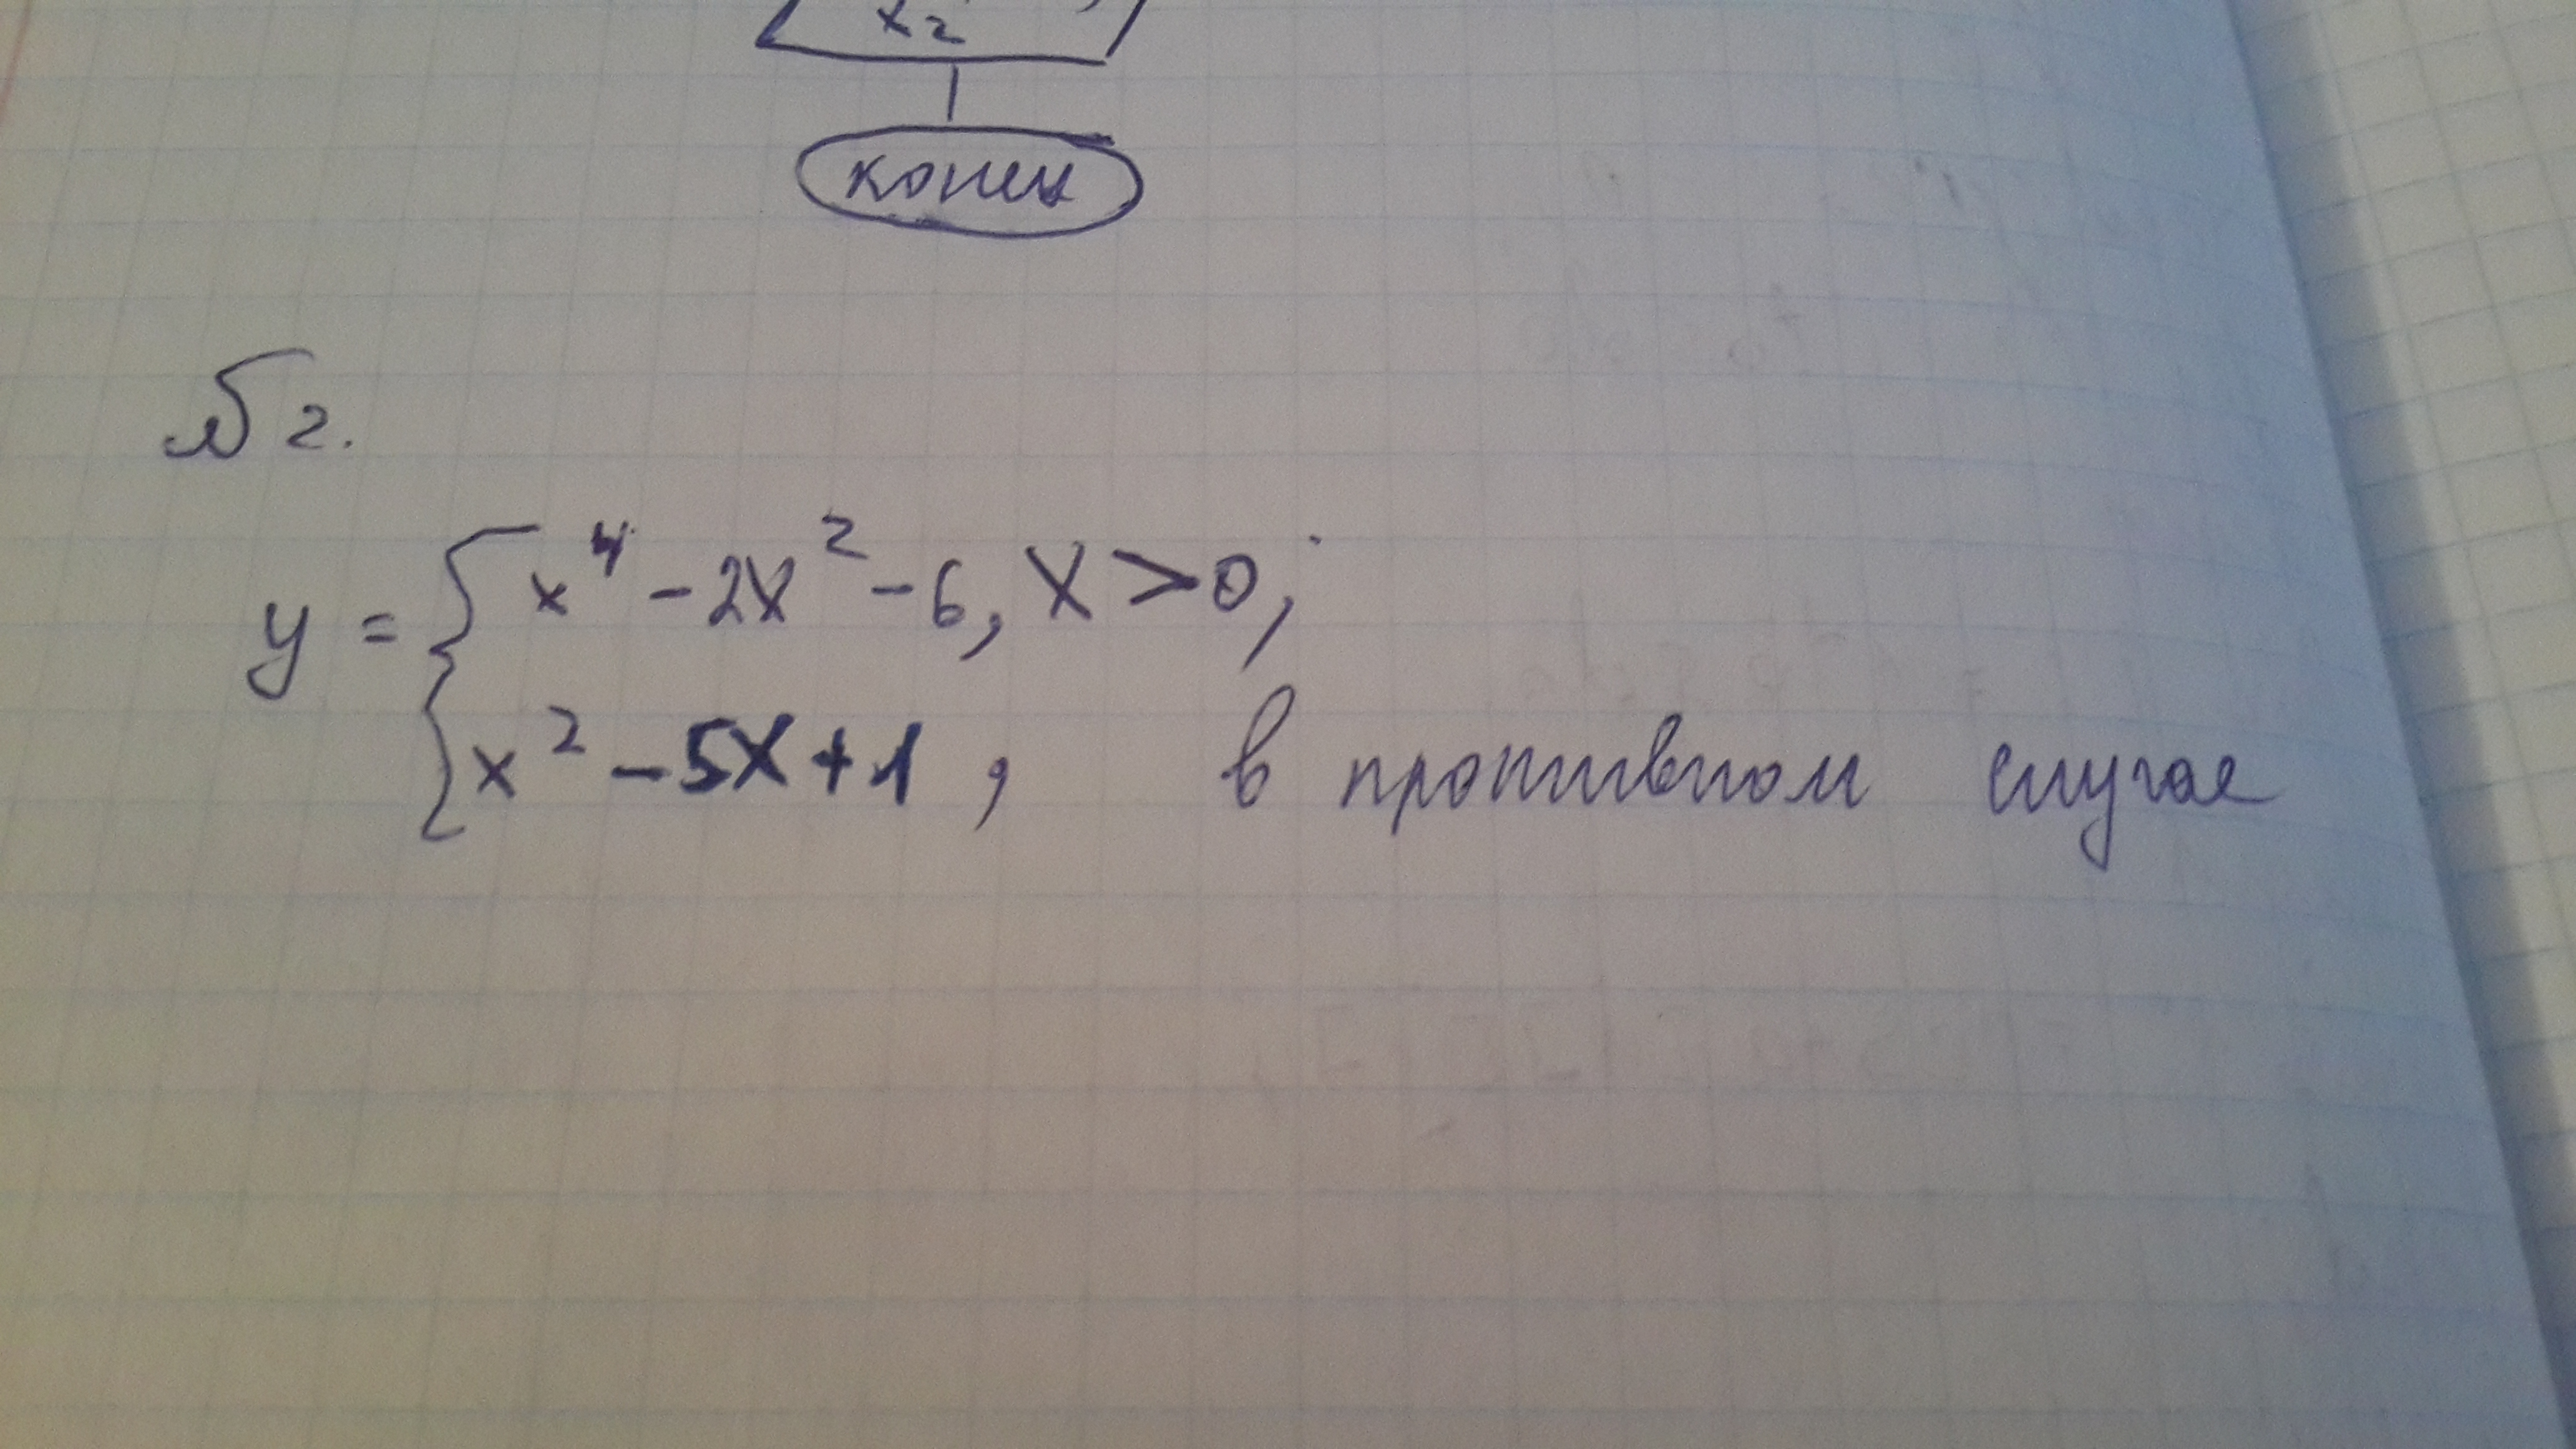 x₂
конец
№2.
y = { x⁴ - 2x² - 6, x > 0;
x² - 5x + 1, в противном случае